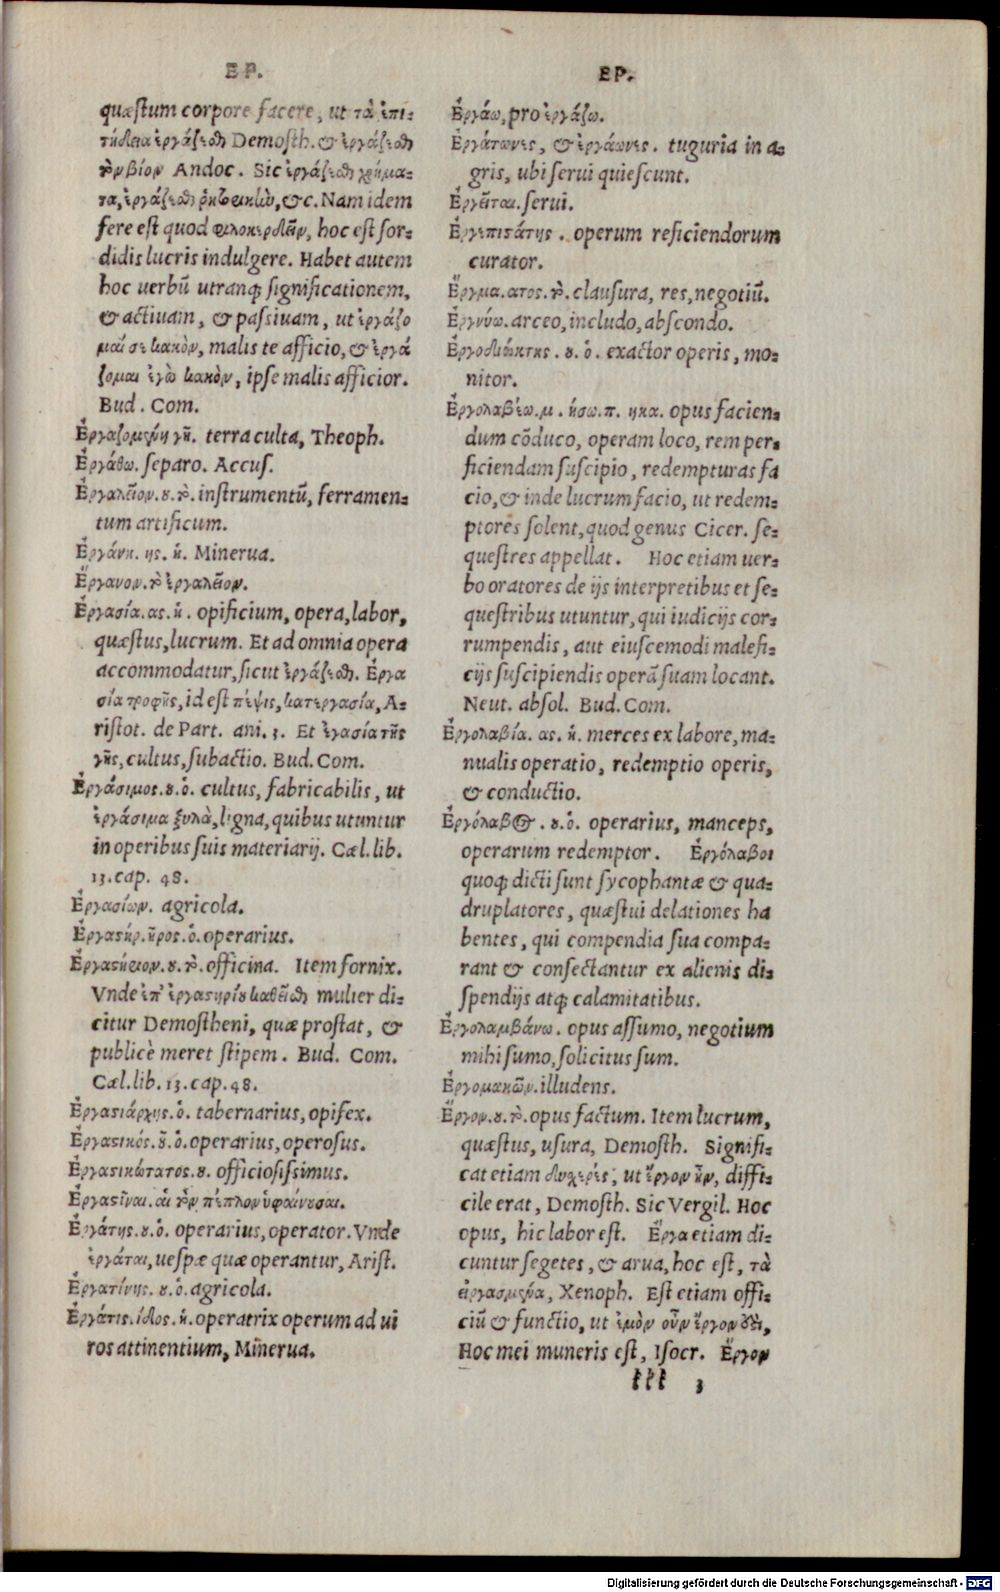 ΕΡ.
quæstum corpore facere, ut τὰ ἐπι-
τήδεια ἐργάζεσθαι Demosth. & ἐργάζεσθαι
τὸν βίον Andoc. Sic ἐργάζεσθαι χρήμα-
τα, ἐργάζεσθαι &c. Nam idem
fere est quod φιλοκερδεῖν, hoc est sor-
didis lucris indulgere. Habet autem
hoc uerbū utranq; significationem,
& actiuam, & passiuam, ut ἐργάζο
μαί σε κακὸν, malis te afficio, & ἐργά
ζομαι ἐγὼ κακὸν, ipse malis afficior.
Bud. Com.
Ἐργαζομένη γῆ. terra culta, Theoph.
Ἐργάθω. separo. Accus.
Ἐργαλεῖον. ου. τὸ. instrumentū, ferramen-
tum artificum.
Ἐργάνη. ης. ἡ. Minerua.
Ἔργανον. τὸ ἐργαλεῖον.
Ἐργασία. ας. ἡ. opificium, opera, labor,
quæstus, lucrum. Et ad omnia opera
accommodatur, sicut ἐργάζεσθαι. Ἐργα
σία τροφῆς, id est πέψις, κατεργασία, A-
ristot. de Part. ani. 3. Et ἐγασία τῆς
γῆς, cultus, subactio. Bud. Com.
Ἐργάσιμος. ου. ὁ. cultus, fabricabilis, ut
ἐργάσιμα ξυλὰ, ligna, quibus utuntur
in operibus suis materiarij. Cæl. lib.
13. cap. 48.
Ἐργασίων. agricola.
Ἐργαστήρ. ῆρος. ὁ. operarius.
Ἐργαστήριον. ου. τὸ. officina. Item fornix.
Vnde ἐπ' ἐργαστηρίου καθεῖσθαι mulier di-
citur Demostheni, quæ prostat, &
publicè meret stipem. Bud. Com.
Cæl. lib. 13. cap. 48.
Ἐργαστιάρχης. ὁ. tabernarius, opifex.
Ἐργαστικός. οῦ. ὁ. operarius, operosus.
Ἐργαστικώτατος. ου. officiosissimus.
Ἐργαστῖναι. αἱ τὸν πέπλον ὑφαίνουσαι.
Ἐργάτης. ου. ὁ. operarius, operator. Vnde
ἐργάται, uespæ quæ operantur, Arist.
Ἐργατίνης. ου. ὁ. agricola.
Ἐργάτις. ίδος. ἡ. operatrix operum ad ui
ros attinentium, Minerua.
ΕΡ.
Ἐργάω, pro ἐργάζω.
Ἐργάτωνες, & ἐργάωνες. tuguria in a-
gris, ubi serui quiescunt.
Ἐργεῖται. serui.
Ἐργεπιστάτης. operum reficiendorum
curator.
Ἔργμα. ατος. τὸ. clausura, res, negotiū.
Ἐργνύω. arceo, includo, abscondo.
Ἐργοδιώκτης. ου. ὁ. exactor operis, mo-
nitor.
Ἐργολαβέω. μ. ήσω. π. ηκα. opus facien-
dum cōduco, operam loco, rem per-
ficiendam suscipio, redempturas fa
cio, & inde lucrum facio, ut redem-
ptores solent, quod genus Cicer. se-
questres appellat. Hoc etiam uer-
bo oratores de ijs interpretibus et se-
questribus utuntur, qui iudicijs cor-
rumpendis, aut eiuscemodi malefi-
cijs suscipiendis operā suam locant.
Neut. absol. Bud. Com.
Ἐργολαβία. ας. ἡ. merces ex labore, ma-
nualis operatio, redemptio operis,
& conductio.
Ἐργόλαβος. ου. ὁ. operarius, manceps,
operarum redemptor. Ἐργόλαβοι
quoq; dicti sunt sycophantæ & qua-
druplatores, quæstui delationes ha
bentes, qui compendia sua compa-
rant & consectantur ex alienis di-
spendijs atq; calamitatibus.
Ἐργολαμβάνω. opus assumo, negotium
mihi sumo, solicitus sum.
Ἐργομακῶν. illudens.
Ἔργον. ου. τὸ. opus factum. Item lucrum,
quæstus, usura, Demosth. Signifi-
cat etiam δυχερές, ut ἔργον ἦν, diffi-
cile erat, Demosth. Sic Vergil. Hoc
opus, hic labor est. Ἔργα etiam di-
cuntur segetes, & arua, hoc est, τὰ
εἰργασμένα, Xenoph. Est etiam offi-
ciū & functio, ut ἐμὸν οὖν ἔργον δεῖ,
Hoc mei muneris est, Isocr. Ἔργον
lll 3
Digitalisierung gefördert durch die Deutsche Forschungsgemeinschaft - DFG